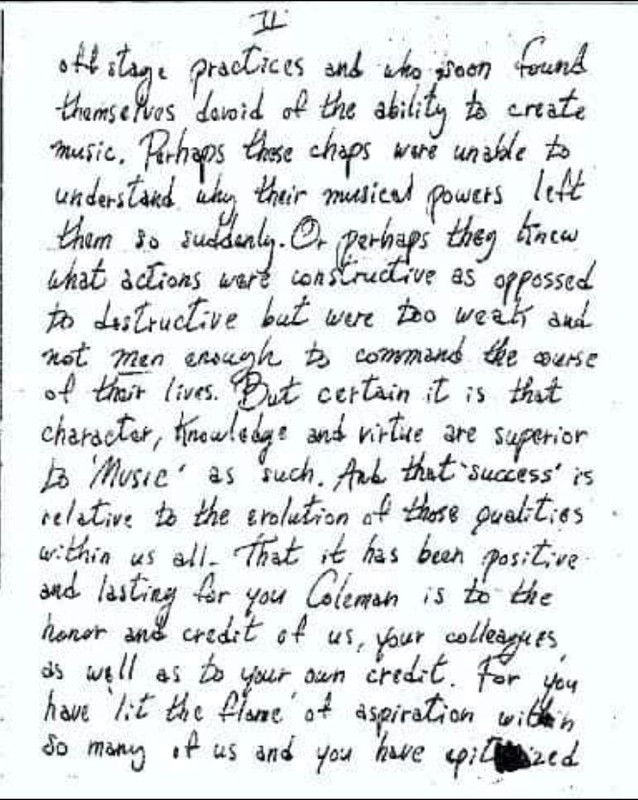 II
off stage practices and who soon found
themselves devoid of the ability to create
music. Perhaps these chaps were unable to
understand why their musical powers left
them so suddenly. Or perhaps they knew
what actions were constructive as oppossed
to destructive but were too weak and
not men enough to command the course
of their lives. But certain it is that
character, Knowledge and virtue are superior
to 'Music' as such. And that 'success' is
relative to the evolution of those qualities
within us all. That it has been positive
and lasting for you Coleman is to the
honor and credit of us, your colleagues,
as well as to your own credit. For you
have 'lit the flame' of aspiration within
so many of us and you have